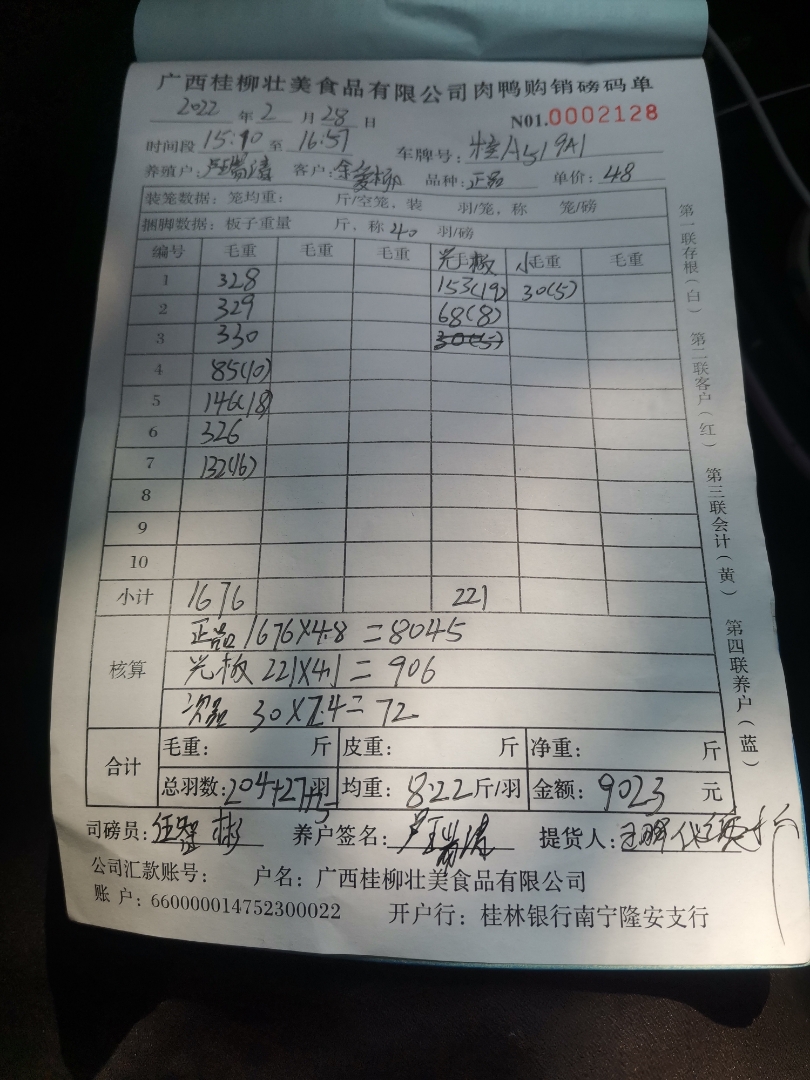 广西桂柳壮美食品有限公司肉鸭购销磅码单
2022 年 2 月 28 日 N01.0002128
时间段 15:10 至 16:57 车牌号: 桂A519A1
养殖户: 客户: 品种: 正品 单价: 4.8
装笼数据: 笼均重: 斤/空笼, 装 羽/笼, 称 笼/磅
捆脚数据: 板子重量 斤, 称 40 羽/磅
编号 毛重 毛重 毛重 光毛板 小毛重 毛重
1 328 153(19) 30(5)
2 329 68(8)
3 330 30(5)
4 85(10)
5 146(18)
6 326
7 132(16)
8
9
10
小计 1676 221
核算
正品 1676X4.8=8045
光板 221X4.1=906
次品 30X2.4=72
合计
毛重: 斤 皮重: 斤 净重: 斤
总羽数: 204+27+5 羽 均重: 8.22 斤/羽 金额: 9023 元
司磅员: 养户签名: 提货人:
公司汇款账号: 户名: 广西桂柳壮美食品有限公司
账户: 660000014752300022 开户行: 桂林银行南宁隆安支行
第一联存根(白) 第二联客户(红) 第三联会计(黄) 第四联养户(蓝)